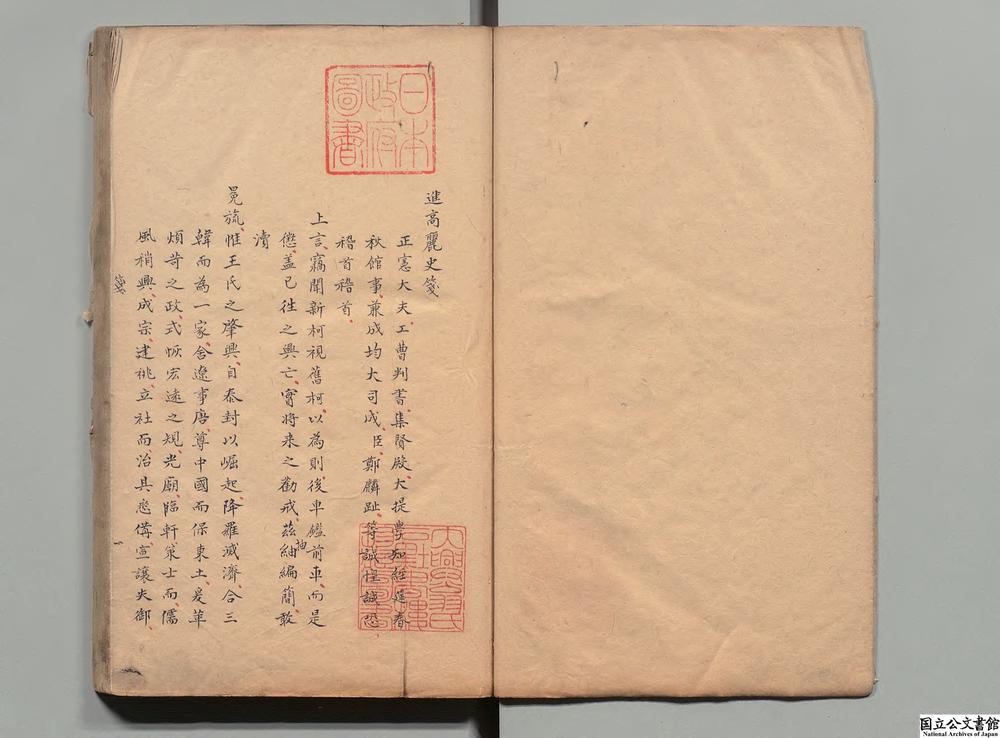 進高麗史箋
正憲大夫工曹判書集賢殿大提學知經筵春
秋館事兼成均大司成臣鄭麟趾等誠惶誠恐
稽首稽首
上言竊聞新柯視舊柯以為則後車鑑前車而是
懲盖已徃之興亡實將来之勸戒茲紬編簡敢
抽
瀆
冕旒惟王氏之肇興自泰封以崛起降羅滅濟合三
韓而為一家舍遼事唐尊中國而保東土爰革
煩苛之政式恢宏遠之規光廟臨軒策士而儒
風稍興成宗建祧立社而治具悉備宣讓失御
箋
日本
政府
圖書
国立公文書館
National Archives of Japan